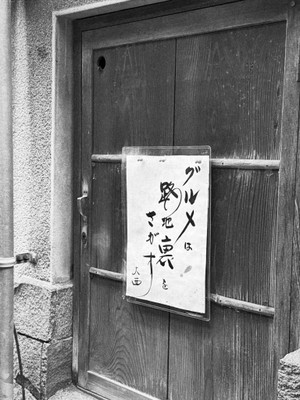 グルメは
路地裏を
さがす